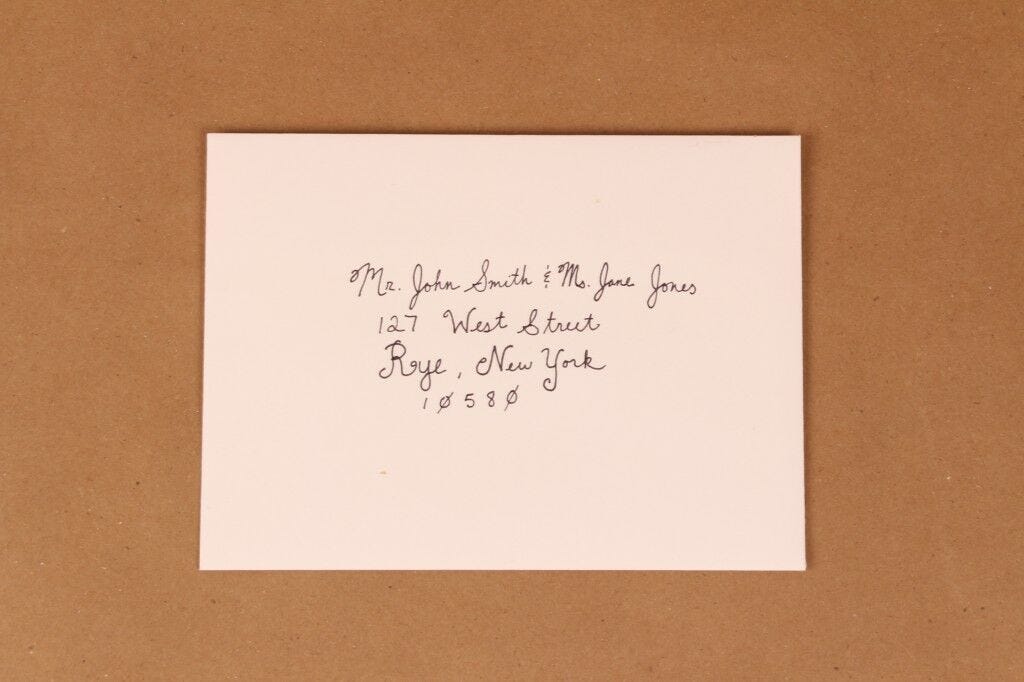 Mr. John Smith & Ms. Jane Jones
127 West Street
Rye, New York
10580